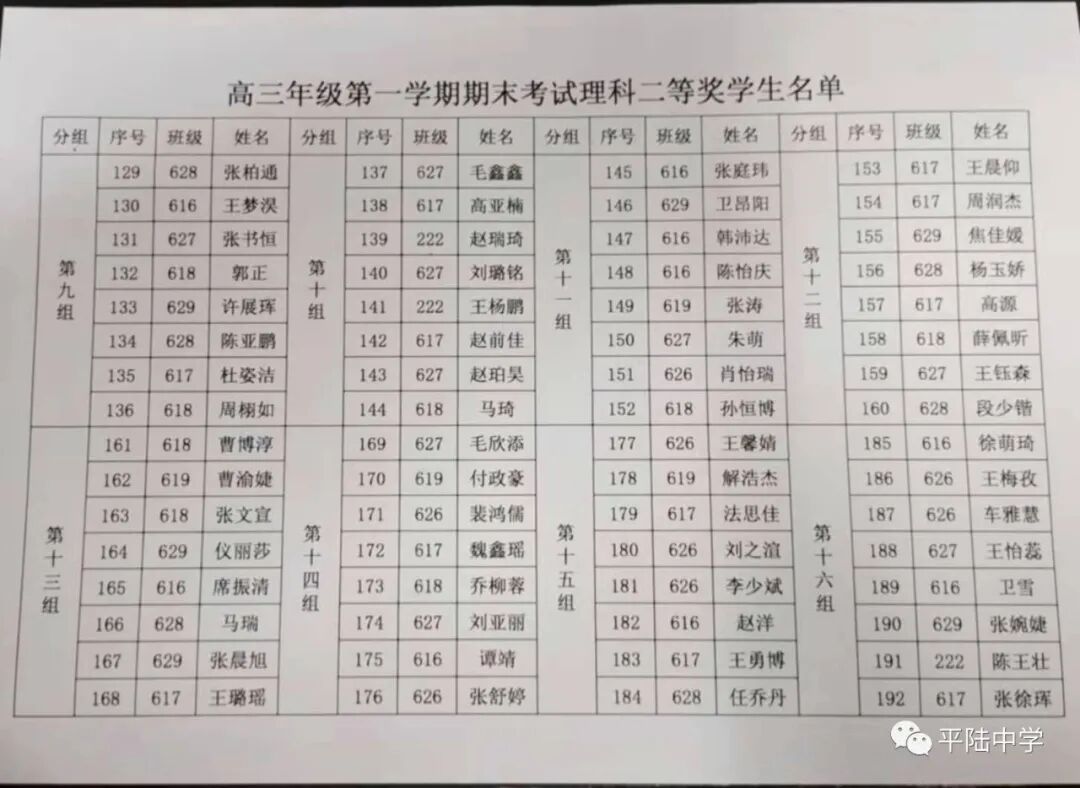 高三年级第一学期期末考试理科二等奖学生名单
分组 序号 班级 姓名 分组 序号 班级 姓名 分组 序号 班级 姓名 分组 序号 班级 姓名
第九组 第十组 第十一组 第十二组
129 628 张柏通 137 627 毛鑫鑫 145 616 张庭玮 153 617 王晨仰
130 616 王梦淏 138 617 高亚楠 146 629 卫昂阳 154 617 周润杰
131 627 张书恒 139 222 赵瑞琦 147 616 韩沛达 155 629 焦佳媛
132 618 郭正 140 627 刘璐铭 148 616 陈怡庆 156 628 杨玉娇
133 629 许展珲 141 222 王杨鹏 149 619 张涛 157 617 高源
134 628 陈亚鹏 142 617 赵前佳 150 627 朱萌 158 618 薛佩昕
135 617 杜姿洁 143 627 赵珀昊 151 626 肖怡瑞 159 627 王钰森
136 618 周栩如 144 618 马琦 152 618 孙恒博 160 628 段少锴
第十三组 第十四组 第十五组 第十六组
161 618 曹博淳 169 627 毛欣添 177 626 王馨婧 185 616 徐萌琦
162 619 曹渝婕 170 619 付政豪 178 619 解浩杰 186 626 王梅孜
163 618 张文宣 171 626 裴鸿儒 179 617 法思佳 187 626 车雅慧
164 629 仪丽莎 172 617 魏鑫瑶 180 626 刘之渲 188 627 王怡蕊
165 616 席振清 173 618 乔柳蓉 181 626 李少斌 189 616 卫雪
166 628 马瑞 174 627 刘亚丽 182 616 赵洋 190 629 张婉婕
167 629 张晨旭 175 616 谭靖 183 617 王勇博 191 222 陈王壮
168 617 王璐瑶 176 626 张舒婷 184 628 任乔丹 192 617 张徐珲
平陆中学